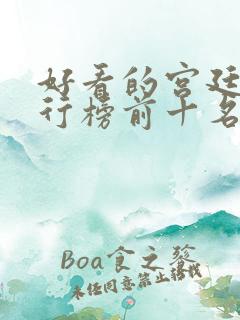 好看的宫廷
行榜前十名
Boa食之發
未经同意禁止搭伐